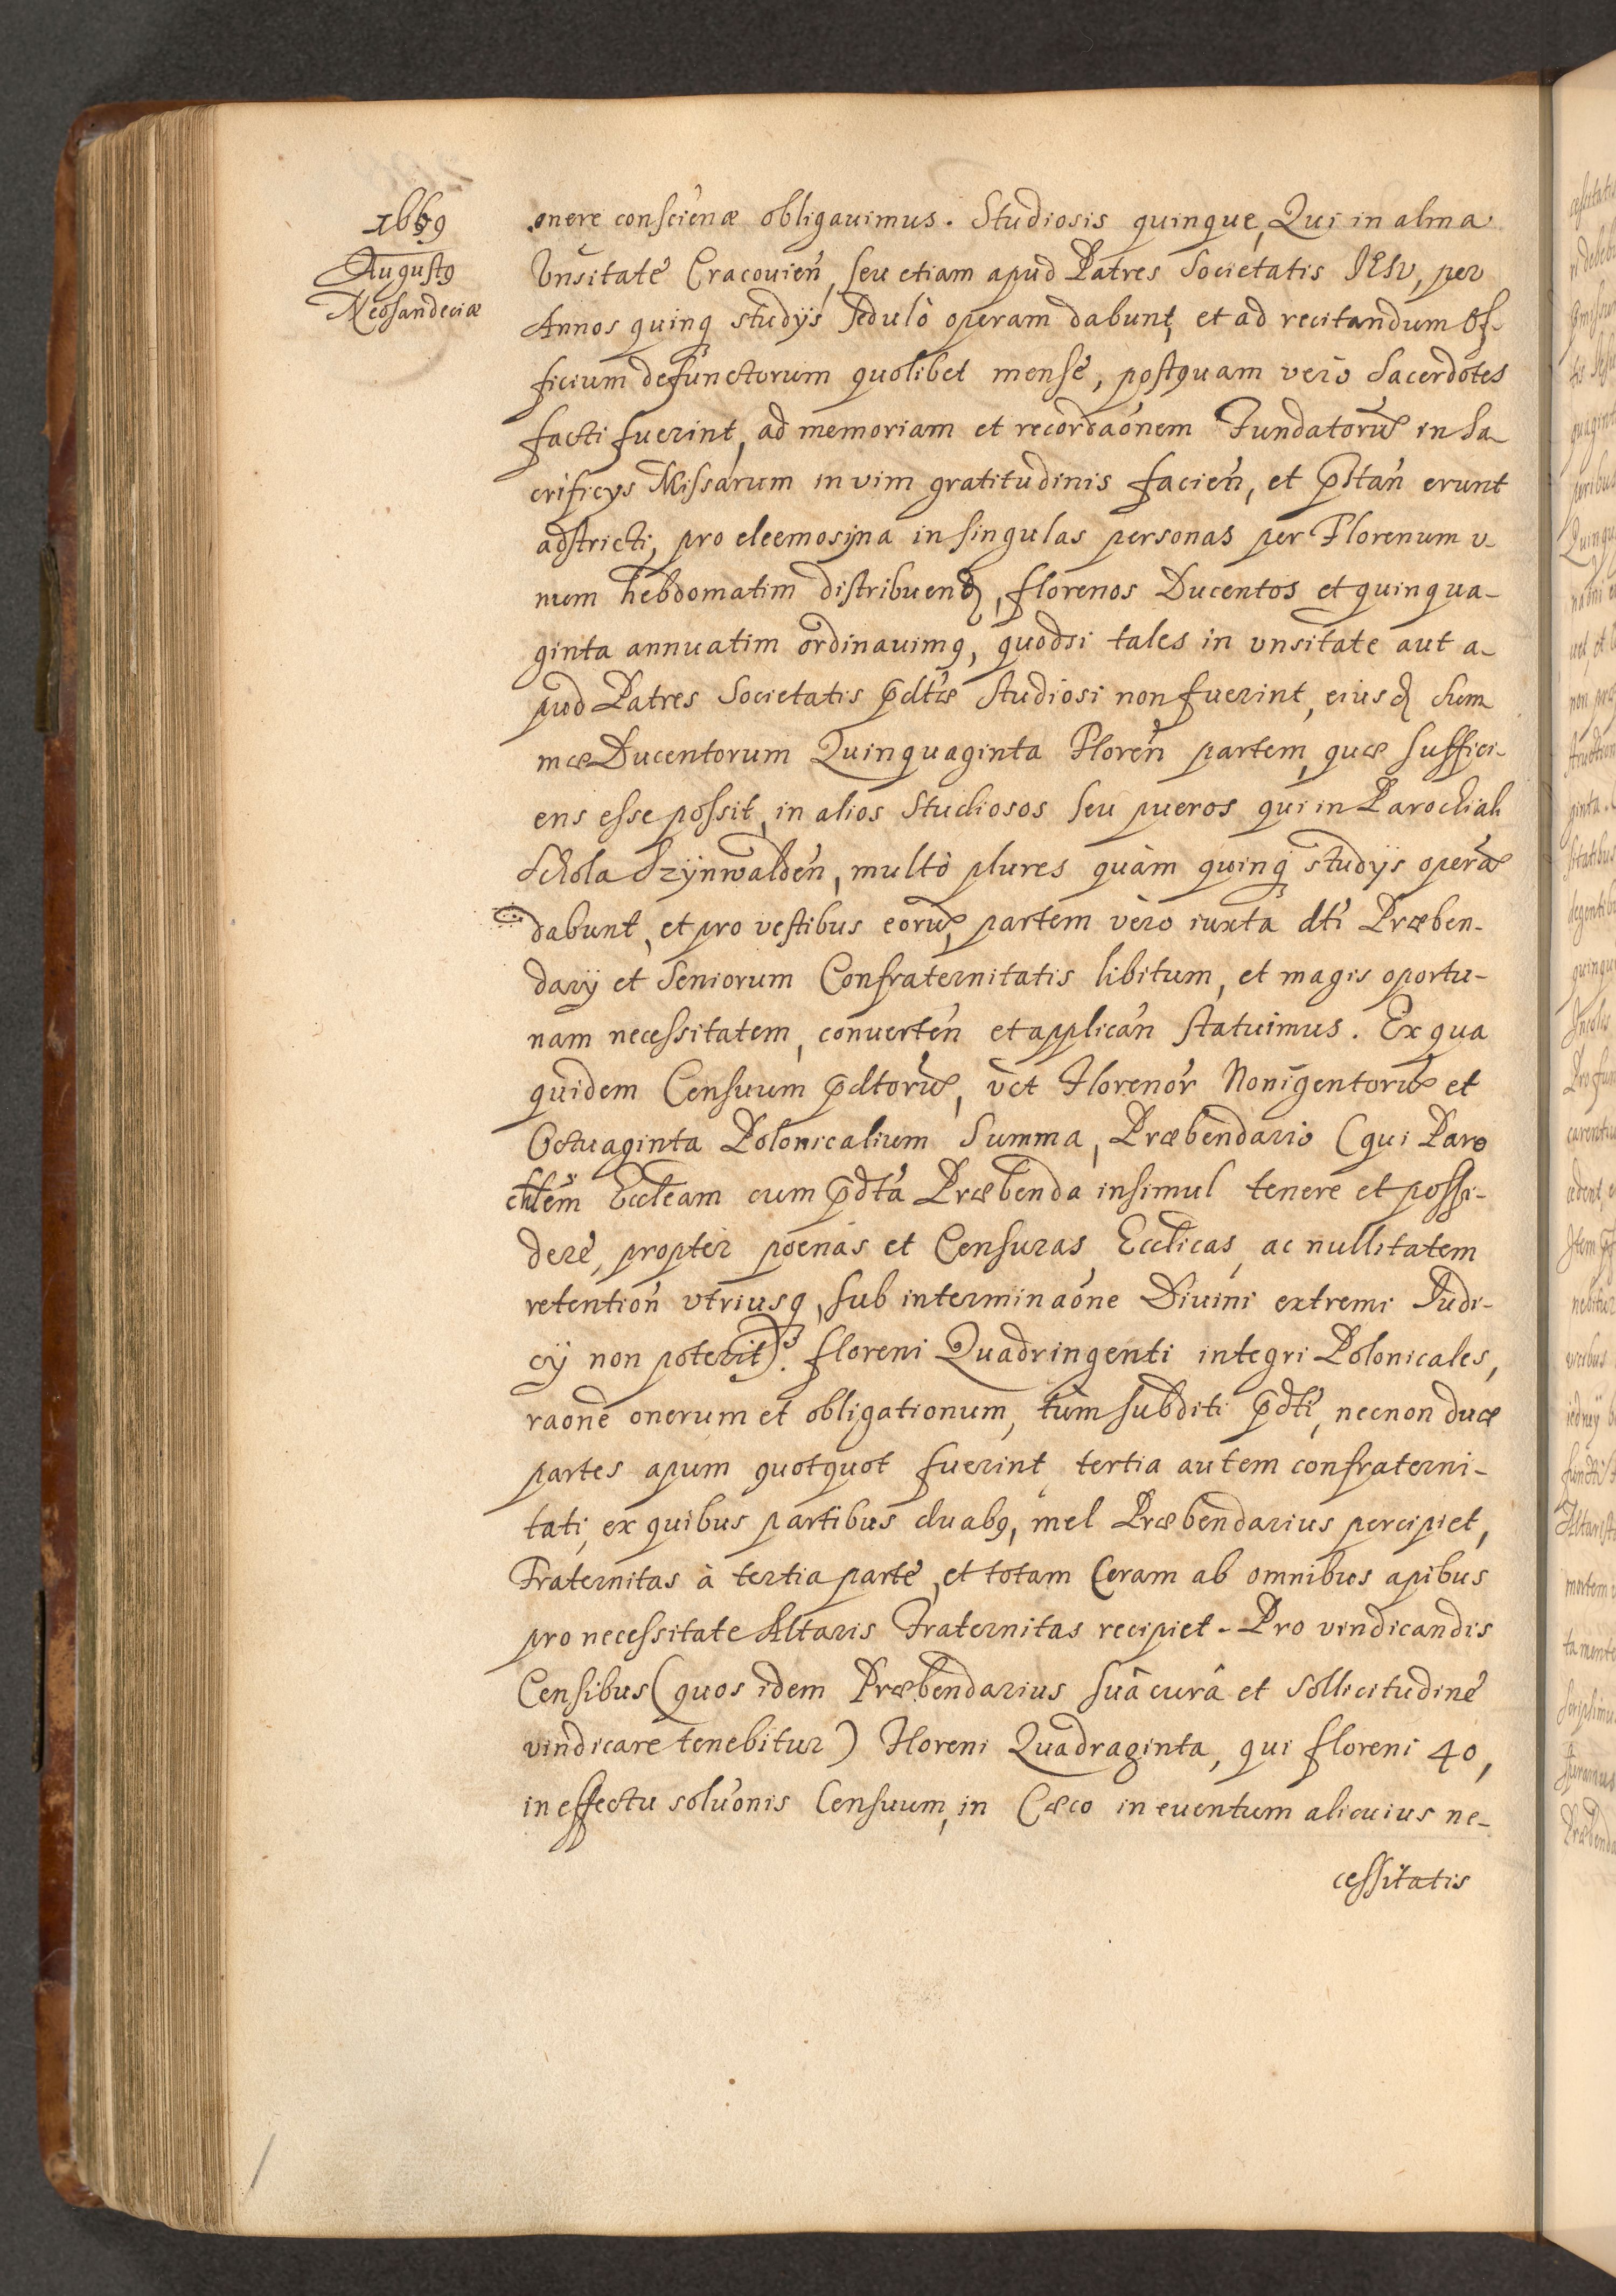 1669
Augustꝯ
Neosandeciæ
onere conscienæ obligauimus. Studiosis quinque, Qui in alma
Vnsitate Cracouien, seu etiam apud Patres Societatis IESV, per
Annos quinq studys sedulò operam dabunt, et ad recitandum Of-
ficium defunctorum quolibet mense, postquam verò Sacerdotes
facti fuerint, ad memoriam et recordaonem Fundatorū in Sa-
crificys Missarum in vim gratitudinis facien, et p̄stan erunt
adstricti, pro eleemosyna in singulas personas per Florenum v-
num hebdomatim distribuend, florenos Ducentos et quinqua-
ginta annuatim ordinauimꝯ, quodsi tales in vnsitate aut a-
pud Patres Societatis p̄dtæ studiosi non fuerint, eiusd Sum
mæ Ducentorum Quinquaginta Floren partem, quæ suffici-
ens esse possit, in alios Studiosos seu pueros qui in Parochiali
Schola Szynwalden, multò plures quàm quinq studÿs operā
dabunt, et pro vestibus eorū, partem vero iuxta dti Præben-
darÿ et Seniorum Confraternitatis libitum, et magis oportu-
nam necessitatem, conuerten et applican statuimus. Ex qua
quidem Censuum p̄dtorū, vct Florenor Noningentorū et
Octuaginta Polonicalium Summa, Præbendario (qui Paro
chlem Eccleam cum p̄dta Præbenda insimul tenere et possi-
dere, propter poenas et Censuras Ecclicas, ac nullitatem
retention vtriusq, sub interminaone Diuini extremi Iudi-
cÿ non poterit). floreni Quadringenti integri Polonicales,
raone onerum et obligationum, tùm subditi p̄dti, necnon duæ
partes apum quotquot fuerint, tertia autem confraterni-
tati, ex quibus partibus duabꝯ, mel Præbendarius percipiet,
Fraternitas à tertia parte, et totam Ceram ab omnibus apibus
pro necessitate Altaris Fraternitas recipiet. Pro vindicandis
Censibus (quos idem Præbendarius suâ curâ et sollicitudine
vindicare tenebitur) Floreni Quadraginta, qui floreni 40,
in effectu soluonis Censuum, in Cæco in euentum alicuius ne-
cessitatis